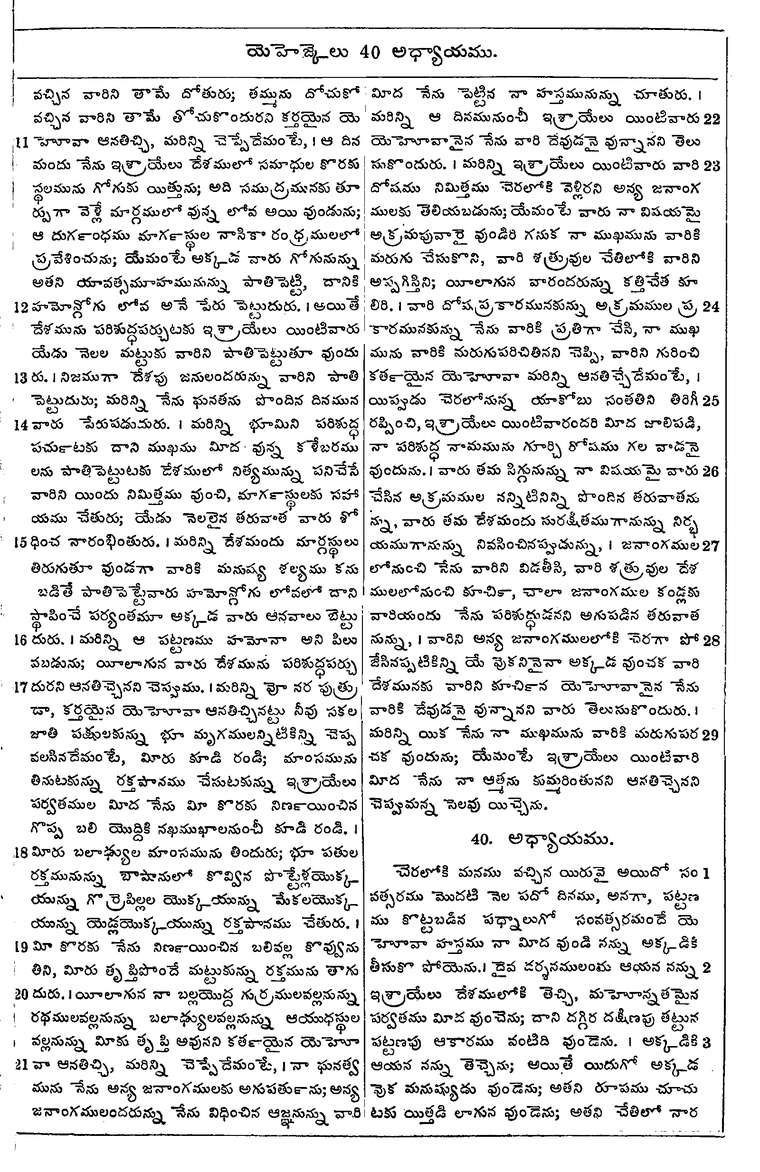 యెహెజ్కేలు 40 అధ్యాయము.
వచ్చిన వారిని తామే దోతురు; తమ్మును దోచుకో
వచ్చిన వారిని తామే తోచుకొందురని కర్తయైన యె
11 హెూవా ఆనతిచ్చి, మరిన్ని చెప్పేదేమంటే, । ఆ దిన
మందు నేను ఇశ్రాయేలు దేశములో సమాధుల కొరకు
స్థలమును గోగుకు యిత్తును; అది సముద్రమునకు తూ
ర్పుగా వెళ్లే మార్గములో వున్న లోవ అయి వుండును;
ఆ దుర్గంధము మార్గస్థుల నాసికా రంధ్రములలో
ప్రవేశించును; యేమంటే అక్కడ వారు గోగునున్ను
అతని యావత్సమూహమునున్ను పాతిపెట్టి, దానికి
12 హమోన్గోగు లోవ అనే పేరు పెట్టుదురు. । అయితే
దేశమును పరిశుద్ధపర్చుటకు ఇశ్రాయేలు యింటివారు
యేడు నెలల మట్టుకు వారిని పాతిపెట్టుతూ వుందు
13 రు. । నిజముగా దేశపు జనులందరున్ను వారిని పాతి
పెట్టుదురు; మరిన్ని నేను ఘనతను పొందిన దినమున
14 వారు పేరుపడుదురు. । మరిన్ని భూమిని పరిశుద్ధ
పర్చుటకు దాని ముఖము మీద వున్న కళేబరము
లను పాతిపెట్టుటకు దేశములో నిత్యమున్ను పనిచేసే
వారిని యిందు నిమిత్తము వుంచి, మార్గస్థులకు సహా
యము చేతురు; యేడు నెలలైన తరువాత వారు శో
15 ధించ నారంభింతురు. । మరిన్ని దేశమందు మార్గస్థులు
తిరుగుతూ వుండగా వారికి మనుష్య శల్యము కను
బడితే పాతిపెట్టేవారు హమోన్గోగు లోవలో దాని
స్థాపించే పర్యంతమూ అక్కడ వారు ఆనవాలు బెట్టు
16 దురు. । మరిన్ని ఆ పట్టణము హమోనా అని పిలు
వబడును; యీలాగున వారు దేశమును పరిశుద్ధపర్చు
17 దురని ఆనతిచ్చెనని చెప్పుము. । మరిన్ని వూ నర పుత్రు
డా, కర్తయైన యెహెూవా ఆనతిచ్చినట్టు నీవు సకల
జాతి పక్షులకున్ను భూ మృగములన్నిటికిన్ని చెప్ప
వలసినదేమంటే, మీరు కూడి రండి; మాంసమును
తినుటకున్ను రక్తపానము చేసుటకున్ను ఇశ్రాయేలు
పర్వతముల మీద నేను మీ కొరకు నిర్ణయించిన
గొప్ప బలి యొద్దికి నఖముఖాలనుంచీ కూడి రండి. ।
18 మీరు బలాఢ్యుల మాంసమును తిందురు; భూ పతుల
రక్తమునున్ను బాషానులో కొవ్విన పొట్టేళ్లయొక్క
యున్ను గొర్రెపిల్లల యొక్కయున్ను మేకలయొక్క
యున్ను యెడ్లయొక్కయున్ను రక్తపానము చేతురు. ।
19 మీ కొరకు నేను నిర్ణయించిన బలివల్ల కొవ్వును
తిని, మీరు తృప్తిపొందే మట్టుకున్ను రక్తమును తాగు
20 దురు. । యీలాగున నా బల్లయొద్ద గుర్రములవల్లనున్ను
రథములవల్లనున్ను బలాఢ్యులవల్లనున్ను ఆయుధస్థుల
వల్లనున్ను మీకు తృప్తి అవునని కర్తయైన యెహెూ
21 వా ఆనతిచ్చి, మరిన్ని చెప్పేదేమంటే, । నా ఘనత్వ
మును నేను అన్య జనాంగములకు అగుపర్తును; అన్య
జనాంగములందరున్ను నేను విధించిన ఆజ్ఞనున్ను వారి
మీద నేను పెట్టిన నా హస్తమునున్ను చూతురు. ।
మరిన్ని ఆ దినమునుంచీ ఇశ్రాయేలు యింటివారు 22
యెహెూవానైన నేను వారి దేవుడనై వున్నానని తెలు
సుకొందురు. । మరిన్ని ఇశ్రాయేలు యింటివారు వారి 23
దోషము నిమిత్తము చెరలోకి వెళ్లిరని అన్య జనాంగ
ములకు తెలియబడును; యేమంటే వారు నా విషయమై
అక్రమపువారై వుండిరి గనుక నా ముఖమును వారికి
మరుగు చేసుకొని, వారి శత్రువుల చేతిలోకి వారిని
అప్పగిస్తిని; యీలాగున వారందరున్ను కత్తిచేత కూ
లిరి. । వారి దోషప్రకారమునకున్ను అక్రమముల ప్ర 24
కారమునకున్ను నేను వారికి ప్రతిగా చేసి, నా ముఖ
మును వారికి మరుగుపరిచితినని చెప్పి, వారిని గురించి
కర్తయైన యెహెూవా మరిన్ని ఆనతిచ్చేదేమంటే, ।
యిప్పుడు చెరలోనున్న యాకోబు సంతతిని తిరిగీ 25
రప్పించి, ఇశ్రాయేలు యింటివారందరి మీద జాలిపడి,
నా పరిశుద్ధ నామమును గూర్చి రోషము గల వాడనై
వుందును. । వారు తమ సిగ్గునున్ను నా విషయమై వారు 26
చేసిన అక్రమముల నన్నిటినిన్ని పొందిన తరువాతను
న్ను, వారు తమ దేశమందు సురక్షితముగానున్ను నిర్భ
యముగానున్ను నివసించినప్పుడున్ను, । జనాంగముల 27
లోనుంచి నేను వారిని విడతీసి, వారి శత్రువుల దేశ
ములలోనుంచి కూర్చి, చాలా జనాంగముల కండ్లకు
వారియందు నేను పరిశుద్ధుడనని అగుపడిన తరువాత
నున్ను, । వారిని అన్య జనాంగములలోకి చెరగా పో 28
జేసినప్పటికిన్ని యే వొకనినైనా అక్కడ వుంచక వారి
దేశమునకు వారిని కూర్చిన యెహెూవానైన నేను
వారికి దేవుడనై వున్నానని వారు తెలుసుకొందురు. ।
మరిన్ని యిక నేను నా ముఖమును వారికి మరుగుపర 29
చక వుందును; యేమంటే ఇశ్రాయేలు యింటివారి
మీద నేను నా ఆత్మను కుమ్మరింతునని ఆనతిచ్చెనని
చెప్పుమన్న సెలవు యిచ్చెను.
40. అధ్యాయము.
చెరలోకి మనము వచ్చిన యిరువై అయిదో సం 1
వత్సరము మొదటి నెల పదో దినము, అనగా, పట్టణ
ము కొట్టబడిన పధ్నాలుగో సంవత్సరమందే యె
హెూవా హస్తము నా మీద వుండి నన్ను అక్కడికి
తీసుకొ పోయెను. । దైవ దర్శనములందు ఆయన నన్ను 2
ఇశ్రాయేలు దేశములోకి తెచ్చి, మహెూన్నతమైన
పర్వతము మీద వుంచెను; దాని దగ్గిర దక్షిణపు తట్టున
పట్టణపు ఆకారము వంటిది వుండెను. । అక్కడికి 3
ఆయన నన్ను తెచ్చెను; అయితే యిదుగో అక్కడ
వొక మనుష్యుడు వుండెను; అతని రూపము చూచు
టకు యిత్తడి లాగున వుండెను; అతని చేతిలో నార